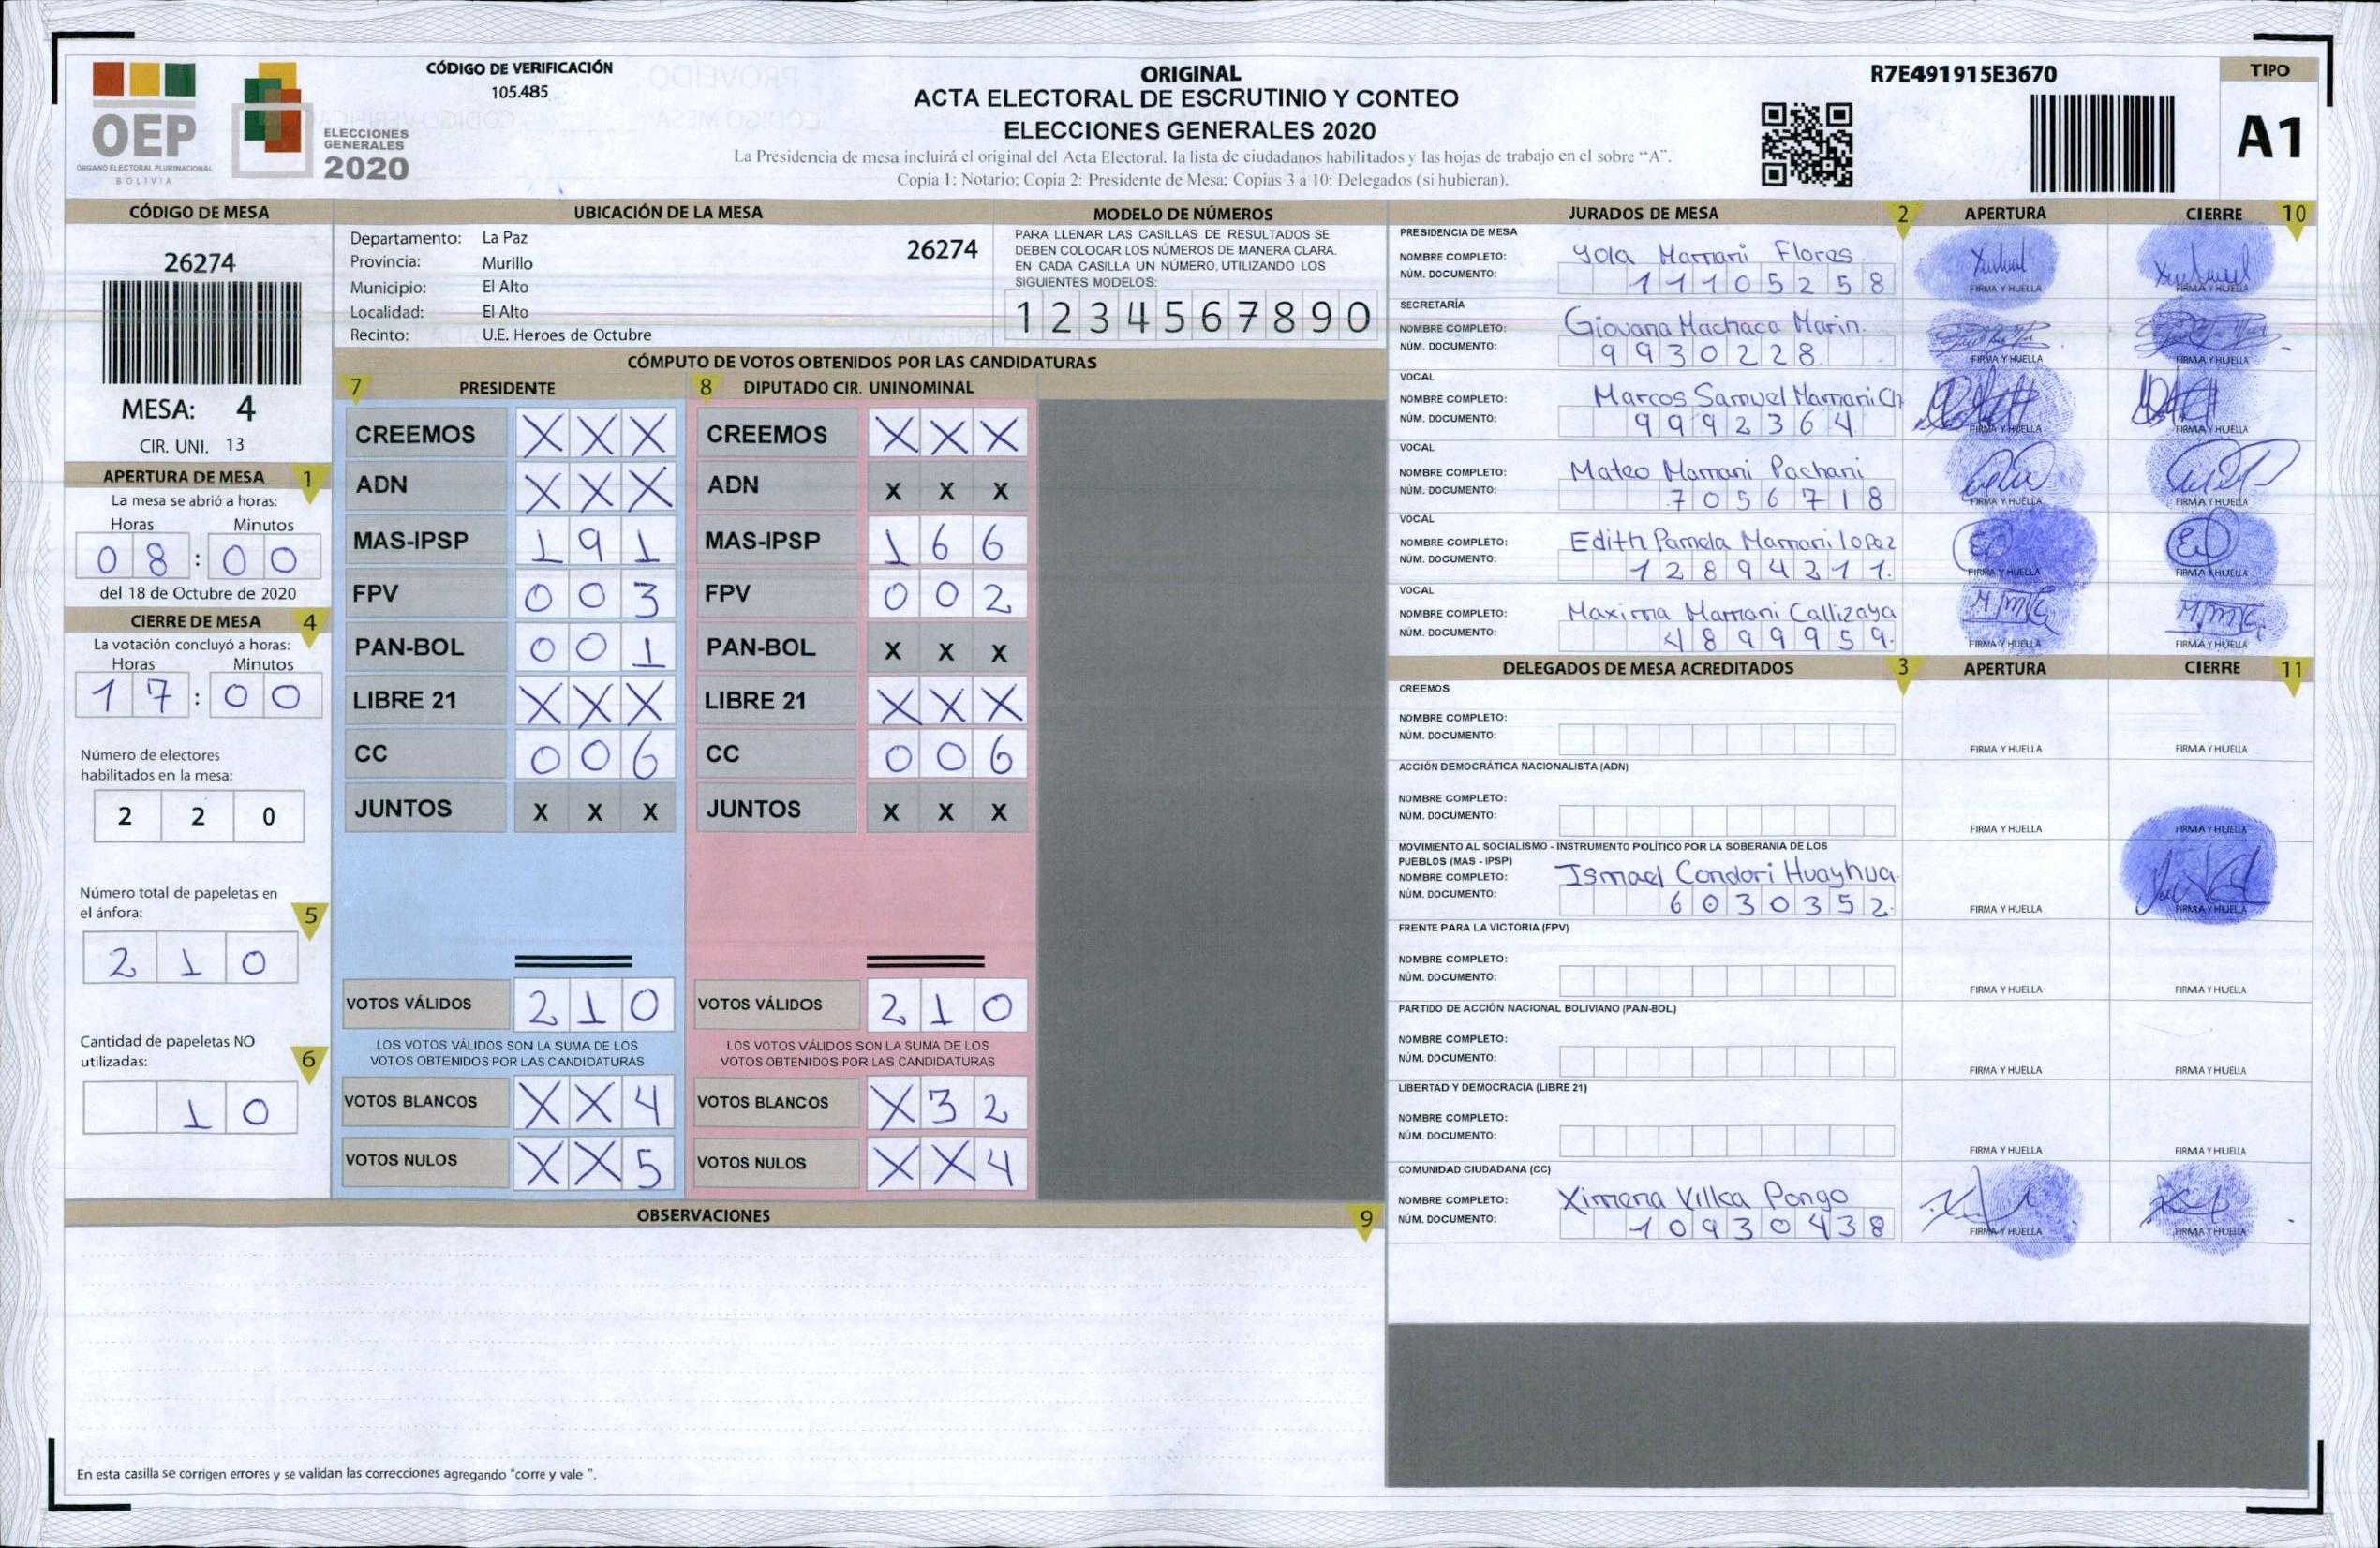 OEP
ÓRGANO ELECTORAL PLURINACIONAL
BOLIVIA
ELECCIONES
GENERALES
2020
CÓDIGO DE VERIFICACIÓN
105.485
ORIGINAL
ACTA ELECTORAL DE ESCRUTINIO Y CONTEO
ELECCIONES GENERALES 2020
La Presidencia de mesa incluirá el original del Acta Electoral, la lista de ciudadanos habilitados y las hojas de trabajo en el sobre “A”.
Copia 1: Notario; Copia 2: Presidente de Mesa; Copias 3 a 10: Delegados (si hubieran).
R7E491915E3670
TIPO
A1
CÓDIGO DE MESA
26274
MESA: 4
CIR. UNI. 13
APERTURA DE MESA 1
La mesa se abrió a horas:
Horas Minutos
08:00
del 18 de Octubre de 2020
CIERRE DE MESA 4
La votación concluyó a horas:
Horas Minutos
17:00
Número de electores
habilitados en la mesa:
2 2 0
Número total de papeletas en
el ánfora: 5
2 1 0
Cantidad de papeletas NO
utilizadas: 6
1 0
UBICACIÓN DE LA MESA
Departamento: La Paz 26274
Provincia: Murillo
Municipio: El Alto
Localidad: El Alto
Recinto: U.E. Heroes de Octubre
MODELO DE NÚMEROS
PARA LLENAR LAS CASILLAS DE RESULTADOS SE
DEBEN COLOCAR LOS NÚMEROS DE MANERA CLARA.
EN CADA CASILLA UN NÚMERO, UTILIZANDO LOS
SIGUIENTES MODELOS:
1 2 3 4 5 6 7 8 9 0
CÓMPUTO DE VOTOS OBTENIDOS POR LAS CANDIDATURAS
7 PRESIDENTE 8 DIPUTADO CIR. UNINOMINAL
CREEMOS X X X CREEMOS X X X
ADN X X X ADN X X X
MAS-IPSP 1 9 1 MAS-IPSP 1 6 6
FPV 0 0 3 FPV 0 0 2
PAN-BOL 0 0 1 PAN-BOL X X X
LIBRE 21 X X X LIBRE 21 X X X
CC 0 0 6 CC 0 0 6
JUNTOS X X X JUNTOS X X X
VOTOS VÁLIDOS 2 1 0 VOTOS VÁLIDOS 2 1 0
LOS VOTOS VÁLIDOS SON LA SUMA DE LOS LOS VOTOS VÁLIDOS SON LA SUMA DE LOS
VOTOS OBTENIDOS POR LAS CANDIDATURAS VOTOS OBTENIDOS POR LAS CANDIDATURAS
VOTOS BLANCOS X X 4 VOTOS BLANCOS X 3 2
VOTOS NULOS X X 5 VOTOS NULOS X X 4
OBSERVACIONES 9
En esta casilla se corrigen errores y se validan las correcciones agregando "corre y vale ".
JURADOS DE MESA 2 APERTURA CIERRE 10
PRESIDENCIA DE MESA
NOMBRE COMPLETO: Yola Mamani Flores
NÚM. DOCUMENTO: 11105258 FIRMA Y HUELLA FIRMA Y HUELLA
SECRETARÍA
NOMBRE COMPLETO: Giovana Machaca Marin.
NÚM. DOCUMENTO: 9930228. FIRMA Y HUELLA FIRMA Y HUELLA
VOCAL
NOMBRE COMPLETO: Marcos Samuel Mamani Ch
NÚM. DOCUMENTO: 9992364 FIRMA Y HUELLA FIRMA Y HUELLA
VOCAL
NOMBRE COMPLETO: Mateo Mamani Pachani
NÚM. DOCUMENTO: 7056718 FIRMA Y HUELLA FIRMA Y HUELLA
VOCAL
NOMBRE COMPLETO: Edith Pamela Mamani lopez
NÚM. DOCUMENTO: FIRMA Y HUELLA FIRMA Y HUELLA
VOCAL
NOMBRE COMPLETO: Maxima Mamani Callizaya
NÚM. DOCUMENTO: 4899959. FIRMA Y HUELLA FIRMA Y HUELLA
DELEGADOS DE MESA ACREDITADOS 3 APERTURA CIERRE 11
CREEMOS
NOMBRE COMPLETO:
NÚM. DOCUMENTO: FIRMA Y HUELLA FIRMA Y HUELLA
ACCIÓN DEMOCRÁTICA NACIONALISTA (ADN)
NOMBRE COMPLETO:
NÚM. DOCUMENTO: FIRMA Y HUELLA FIRMA Y HUELLA
MOVIMIENTO AL SOCIALISMO - INSTRUMENTO POLÍTICO POR LA SOBERANIA DE LOS
PUEBLOS (MAS - IPSP)
NOMBRE COMPLETO: Ismael Condori Huayhua.
NÚM. DOCUMENTO: 6030352. FIRMA Y HUELLA FIRMA Y HUELLA
FRENTE PARA LA VICTORIA (FPV)
NOMBRE COMPLETO:
NÚM. DOCUMENTO: FIRMA Y HUELLA FIRMA Y HUELLA
PARTIDO DE ACCIÓN NACIONAL BOLIVIANO (PAN-BOL)
NOMBRE COMPLETO:
NÚM. DOCUMENTO: FIRMA Y HUELLA FIRMA Y HUELLA
LIBERTAD Y DEMOCRACIA (LIBRE 21)
NOMBRE COMPLETO:
NÚM. DOCUMENTO: FIRMA Y HUELLA FIRMA Y HUELLA
COMUNIDAD CIUDADANA (CC)
NOMBRE COMPLETO: Ximena Villca Pongo
NÚM. DOCUMENTO: 10930438 FIRMA Y HUELLA FIRMA Y HUELLA